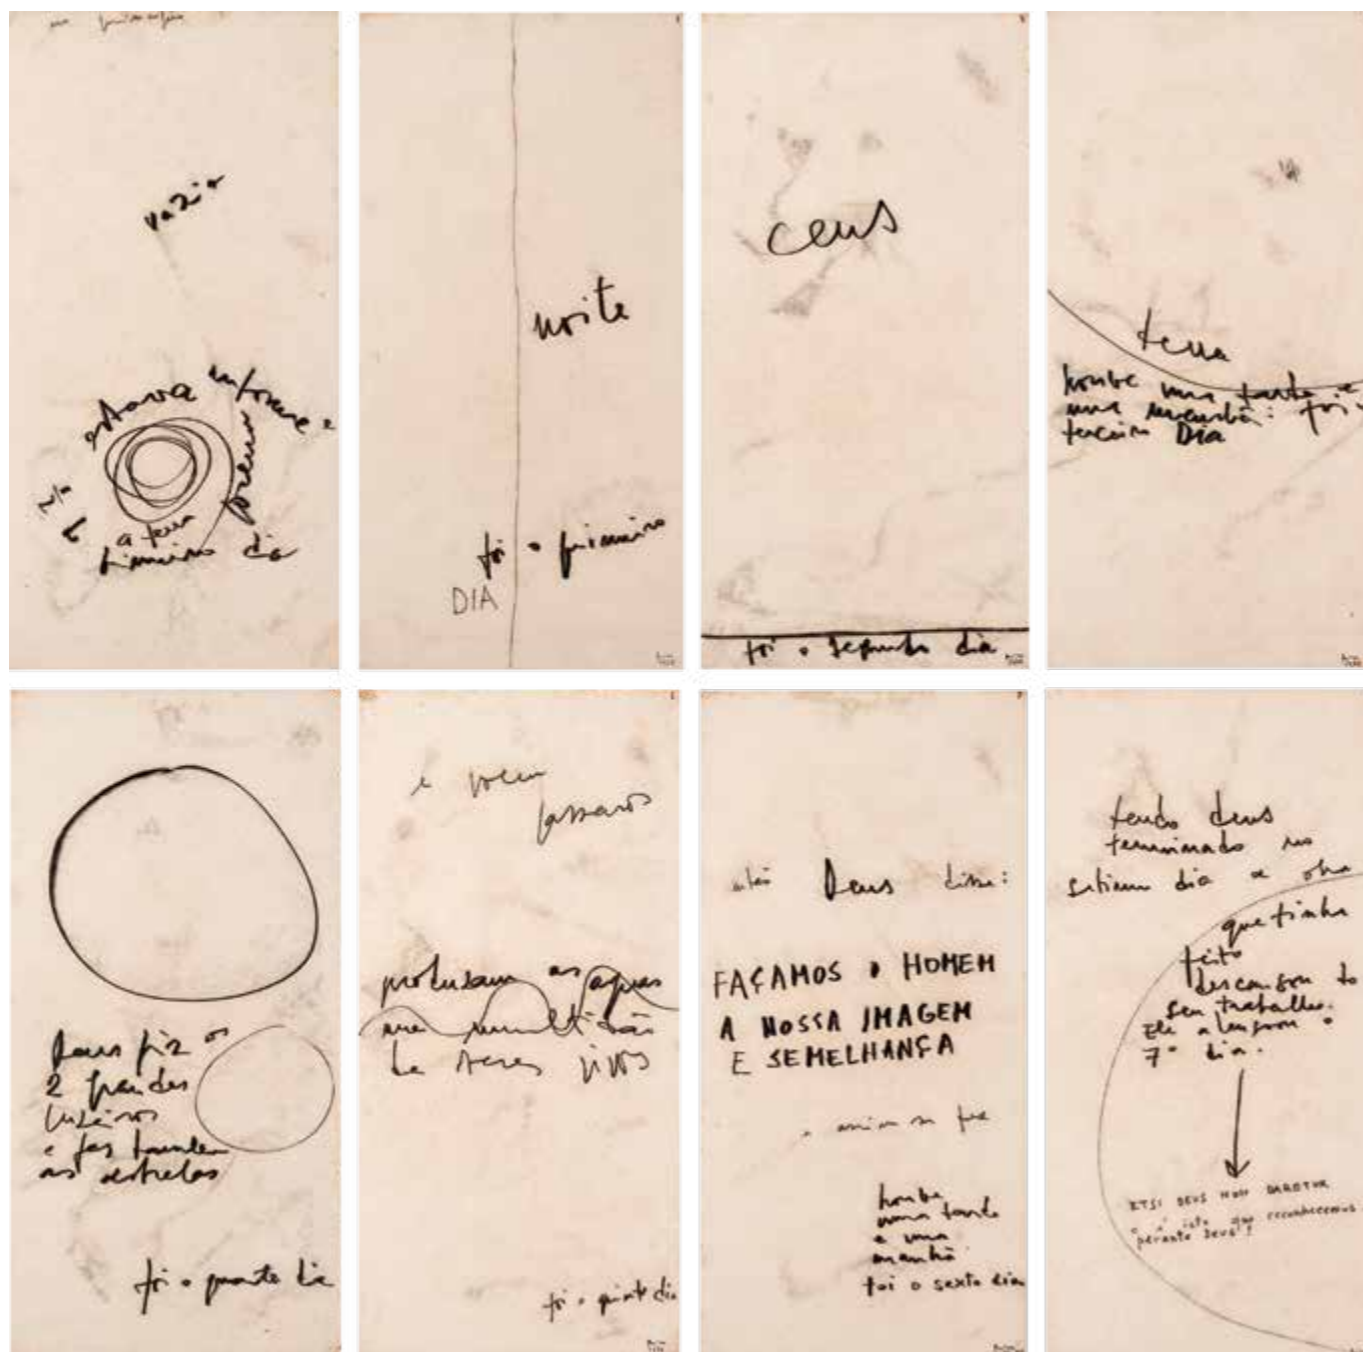 vazio
estava informe e
a terra
primeiro dia
noite
foi o primeiro
DIA
ceus
foi o segundo dia
terra
houve uma tarde e
uma manhã: foi o
terceiro DIA
Deus fiz os
2 grandes
luzeiros
e fez tambem
as estrelas
foi o quarto dia
e voem
passaros
produzam as aguas
uma multidão
de seres vivos
foi o quinto dia
então Deus disse:
FAÇAMOS O HOMEM
A NOSSA IMAGEM
E SEMELHANÇA
e assim se fez
houve
uma tarde
e uma
manhã
foi o sexto dia
tendo deus
terminado no
setimo dia a obra
que tinha
feito
descansou do
seu trabalho.
Ele abençoou o
7º dia.
ETSI DEUS NON DARETUR
e é isto que reconhecemus
perante Deus!